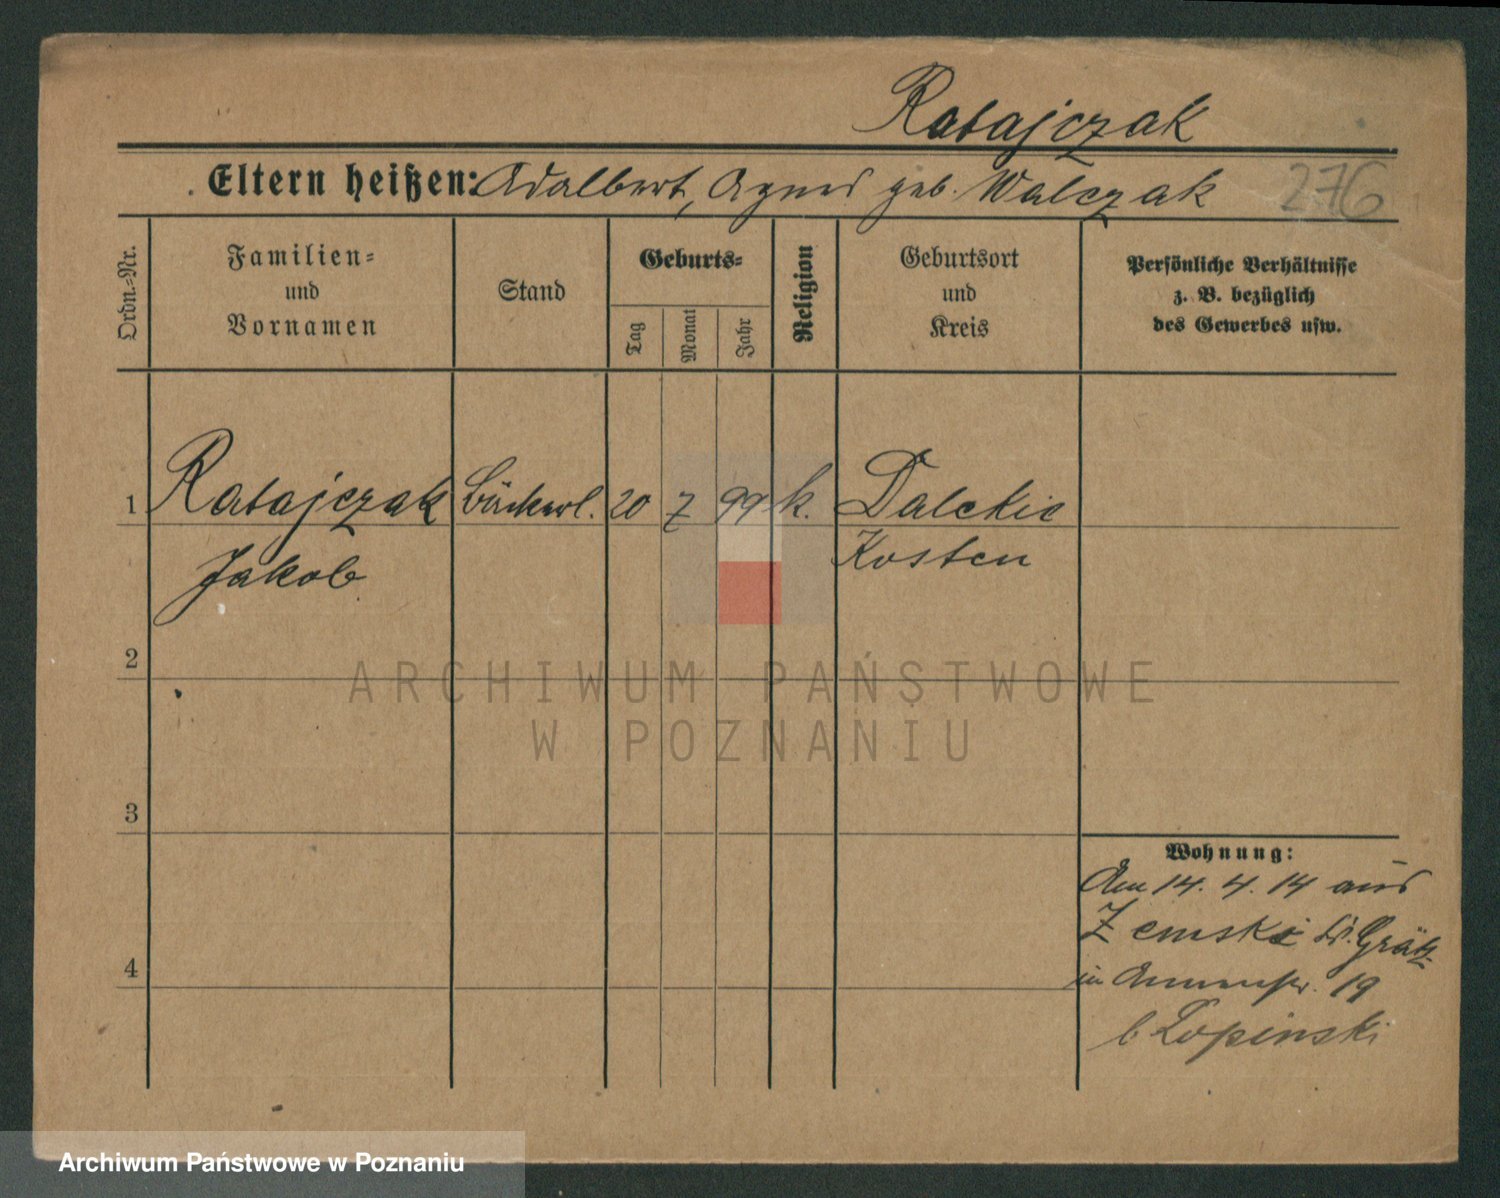 Ratajczak
Eltern heißen: Adalbert, Agnes geb. Walczak
276
Ordn.-Nr.
Familien-
und
Vornamen
Stand
Geburts-
Tag
Monat
Jahr
Religion
Geburtsort
und
Kreis
Persönliche Verhältnisse
z. B. bezüglich
des Gewerbes usw.
1 Ratajczak Bäckerl. 20 7 99 k. Dalekie
Jakob Kosten
2
ARCHIWUM PAŃSTWOWE
W POZNANIU
3
Wohnung:
Am 14. 4. 14 aus
Zemsko Grätz
4
in Annenstr. 19
b Lopinski
Archiwum Państwowe w Poznaniu